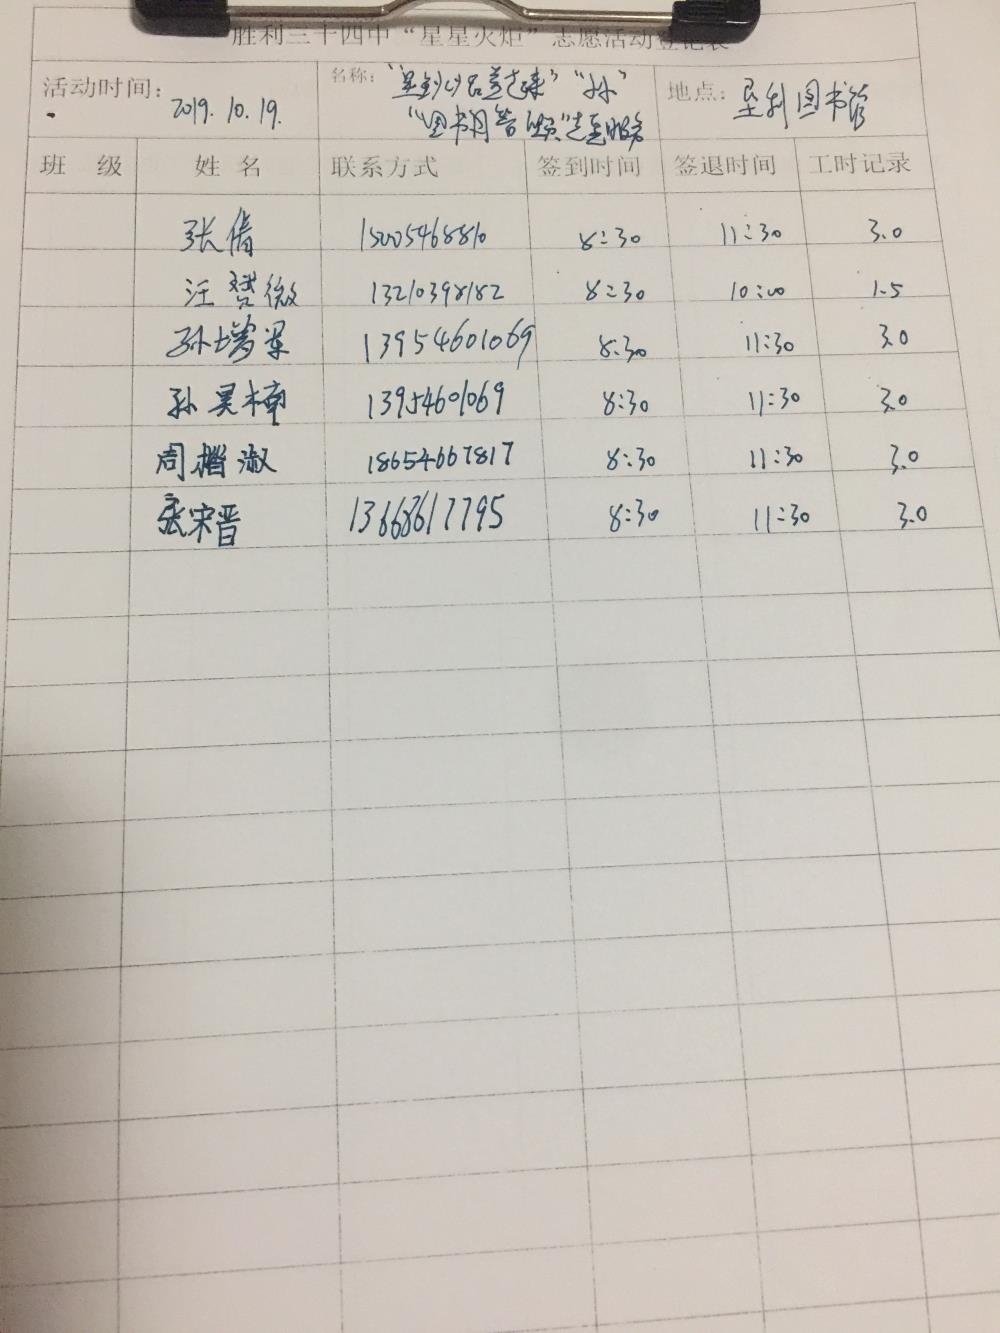 胜利三十四中“星星火炬”志愿活动登记表
活动时间： 2019.10.19. 名称： 地点： 垦利图书馆
班 级 姓 名 联系方式 签到时间 签退时间 工时记录
张倩 15005468810 8:30 11:30 3.0
汪赞微 13210398182 8:30 10:00 1.5
孙增梁 13954601069 8:30 11:30 3.0
孙昊楠 13954601069 8:30 11:30 3.0
周楷淑 18654667817 8:30 11:30 3.0
张宋晋 13668617795 8:30 11:30 3.0